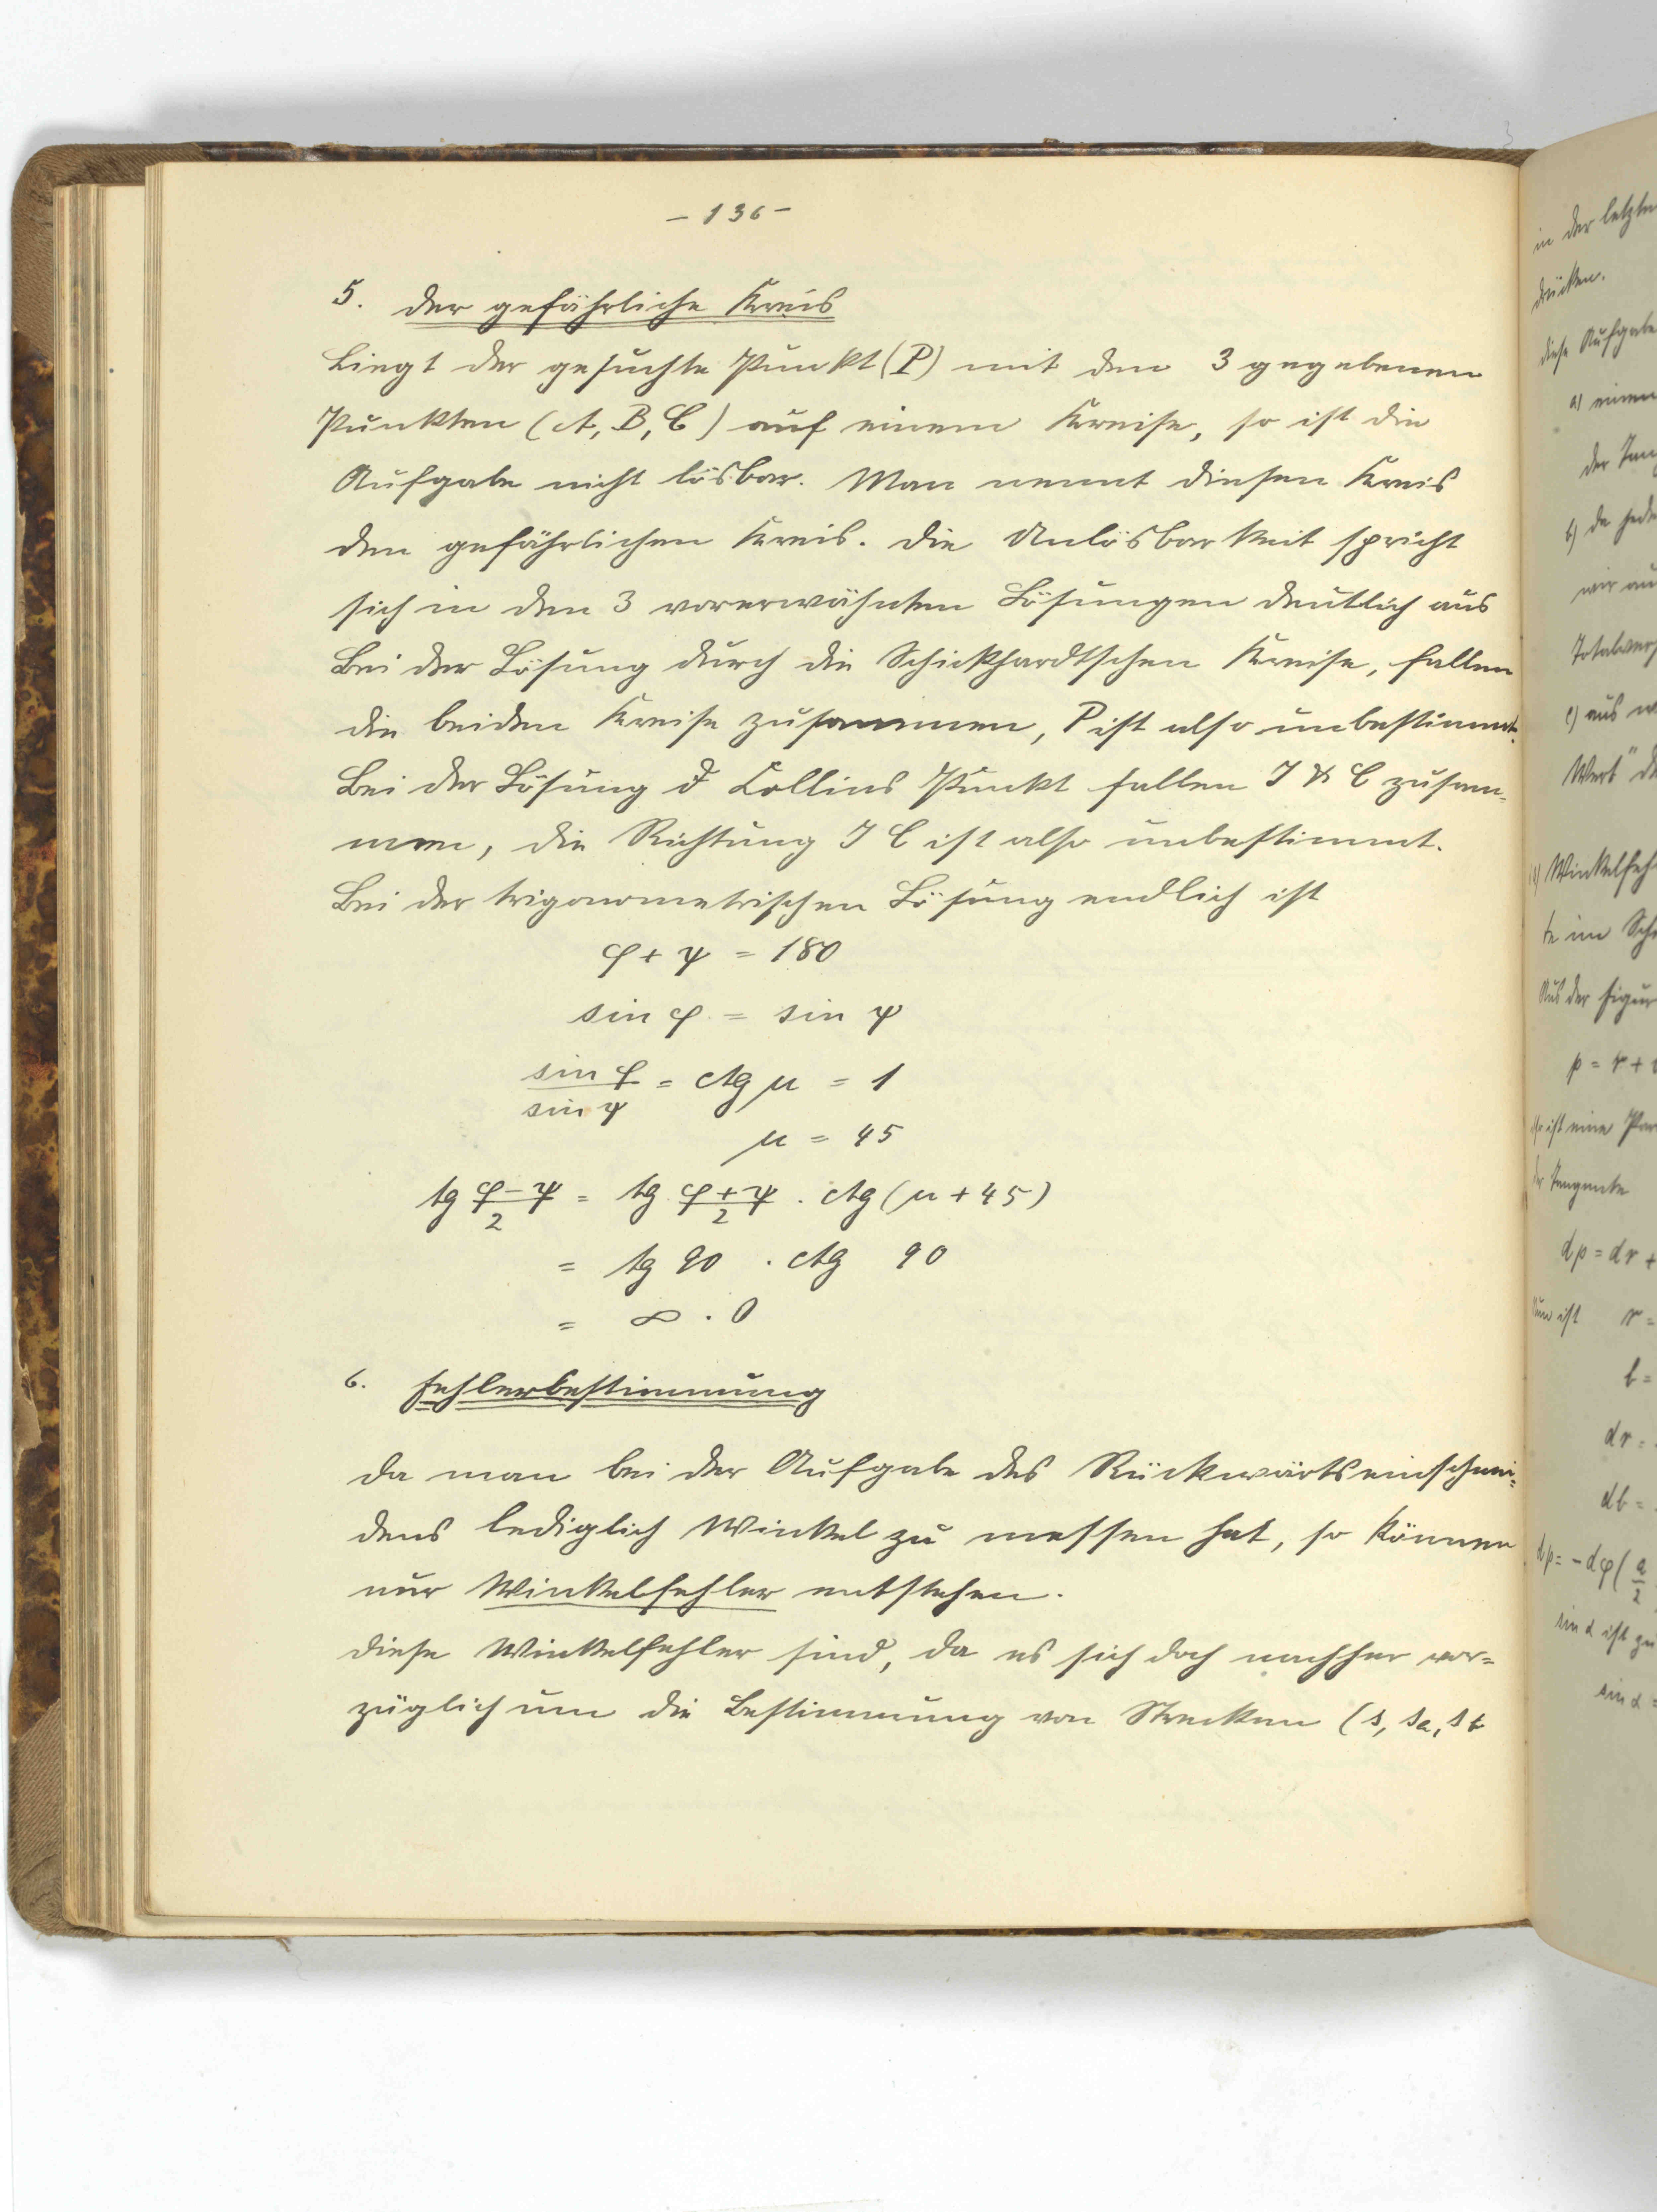 - 136 -
5. Der gefährliche Kreis
Liegt der gesuchte Punkt (P) mit den 3 gegebenen
Punkten (A, B, C) auf einem Kreise, so ist die
Aufgabe nicht lösbar. Man nennt diesen Kreis
den gefährlichen Kreis. Die Unlösbarkeit spricht
sich in den 3 vorerwähnten Lösungen deutlich aus
Bei der Lösung durch die Schickhardtschen Kreise, fallen
die beiden Kreise zusammen, P ist also unbestimmt.
Bei der Lösung d Collins Punkt fallen J & C zusam-
men, die Richtung J C ist also unbestimmt.
Bei der trigonometrischen Lösung endlich ist
φ + ψ = 180
sin φ = sin ψ
sin φ / sin ψ = ctg μ = 1
μ = 45
tg φ-ψ / 2 = tg φ+ψ / 2 . ctg (μ + 45)
= tg 90 . ctg 90
= ∞ . 0
6. Fehlerbestimmung
Da man bei der Aufgabe des Rückwärtseinschnei-
dens lediglich Winkel zu messen hat, so können
nur Winkelfehler entstehen.
Diese Winkelfehler sind, da es sich doch nachher vor-
züglich um die Bestimmung von Strecken (s, sa, sb
in der letzten
drücken.
diese Aufgabe
a) einen
der
b) da jede
wir
c) aus
Wert" d
Winkelfeh
te im Sch
Aus der Figur
p = r +
ist eine
der Tangente
dp = dr +
Nun ist r =
b =
dr =
db =
dp = - dφ ( a / 2
sin α ist zu
sin α =